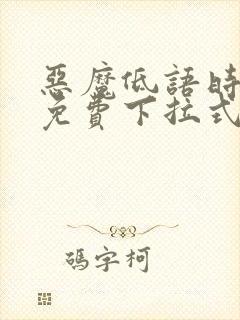 惡魔低語時
免費下拉式
碼字柯